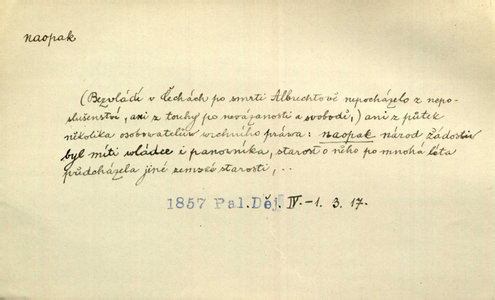 naopak
(Bezvládí v Čechách po smrti Albrechtově nepocházelo z nepo-
slušenství, ani z touhy po nevázanosti a svobodě,) ani z půtek
několika osobovatelův vrchního práva: naopak národ žádostiv
byl míti vládce i panovníka, starost o něho po mnohá léta
předcházela jiné zemské starosti, ..
1857 Pal. Děj. IV.-1. 3. 17.